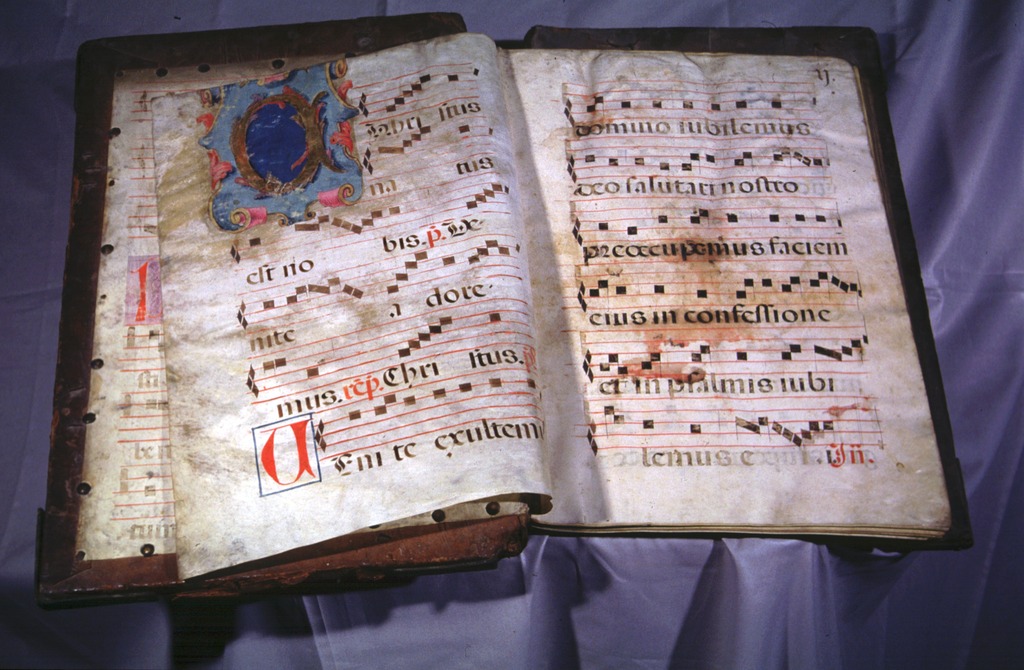 Chri stus
na tus
est no bis. p̄. Ve
nite a dore
mus. rep̄. Chri stus.
Veni te exultem
ij.
domino iubilemus
deo salutari nostro
preoccupemus faciem
eius in confessione
et in psalmis iubi
lemus